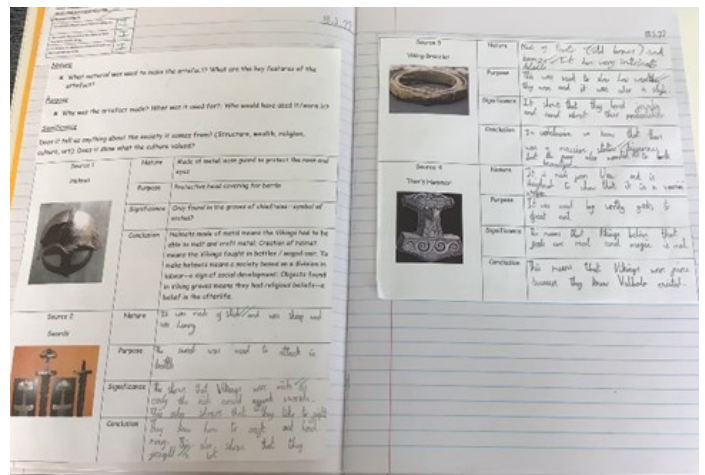 18.3.22
Nature
What natural was used to make the artefact? What are the key features of the
artefact?
Purpose
Why was the artefact made? What was it used for? Who would have used it/wore it?
Significance
Does it tell us anything about the society it comes from? (Structure, wealth, religion,
culture, art). Does it show what the culture valued?
Source 1
Helmet
Nature
Made of metal nose guard to protect the nose and
eyes
Purpose
Protective head covering for battle
Significance
Only found in the graves of chieftains—symbol of
status?
Conclusion
Helmets made of metal means the Vikings had to be
able to melt and craft metal. Creation of helmet
means the Vikings fought in battles / waged war. To
make helmets means a society based on a division in
labour—a sign of social development. Objects found
in Viking graves means they had religious beliefs—a
belief in the afterlife.
Source 2
Swords
Nature
It was made of and was sharp and
was heavy
Purpose
The sword was used to attack in
battle
Significance
The shows that Vikings were
only the rich could swords.
This also shows that they like to fight
Conclusion
They know how to craft and
This also shows that they
a lot
18.3.22
Source 3
Viking Bracelet
Nature
Made of and
It has very intricate
details
Purpose
This was used to show how wealthy
they were and it was also a style
Significance
It shows that they loved jewelry
and cared about their
Conclusion
In conclusion we know that there
was a massive
but the poor also wanted to look
beautiful
Source 4
Thor's Hammer
Nature
It is made from and is
designed to show that it is a
Purpose
It was used by gods to
evil
Significance
This means that Vikings believe that
gods are real and magic is real
Conclusion
This means that Vikings were
because they knew Valhalla existed.